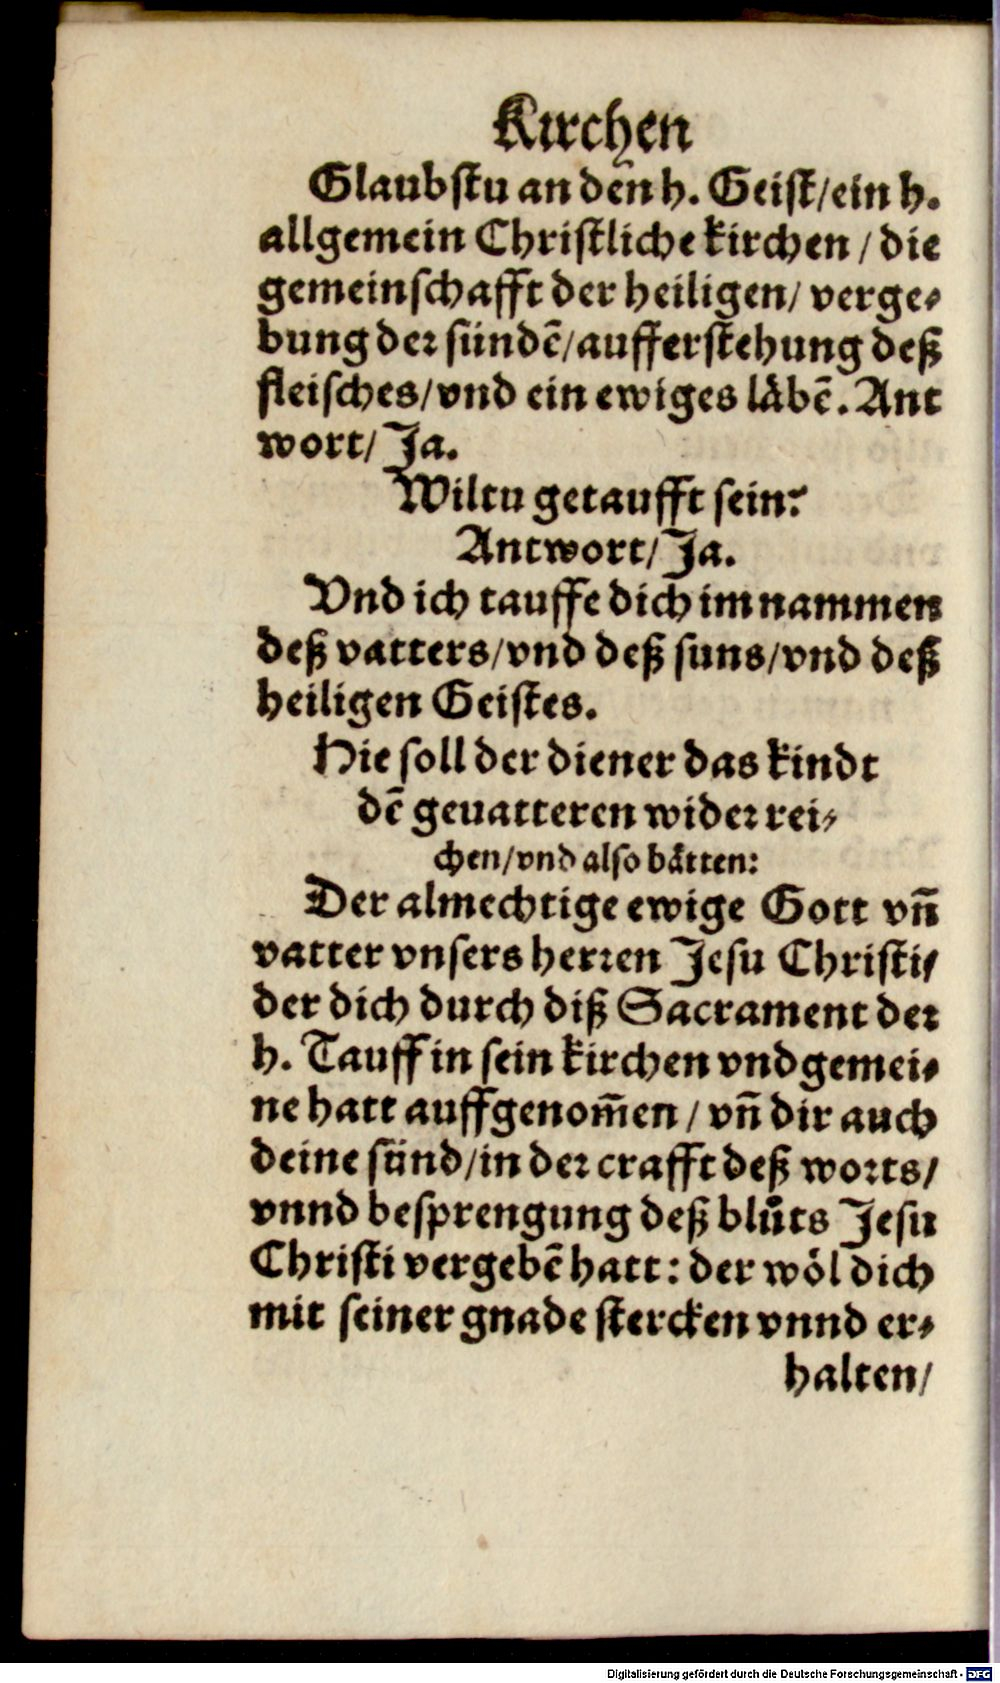 Kirchen
Glaubstu an den h. Geist/ein h.
allgemein Christliche kirchen / die
gemeinschafft der heiligen/ verge⸗
bung der sündẽ/aufferstehung deß
fleisches/vnd ein ewiges läbẽ. Ant
wort/ Ja.
Wiltu getaufft sein?
Antwort/ Ja.
Vnd ich tauffe dich im nammen
deß vatters/vnd deß suns/vnd deß
heiligen Geistes.
Hie soll der diener das kindt
dẽ geuatteren wider rei⸗
chen/vnd also bätten:
Der almechtige ewige Gott vñ
vatter vnsers herren Jesu Christi/
der dich durch diß Sacrament der
h. Tauff in sein kirchen vnd gemei⸗
ne hatt auffgenom̃en / vñ dir auch
deine sünd/in der crafft deß worts/
vnnd besprengung deß blůts Jesu
Christi vergebẽ hatt: der wöl dich
mit seiner gnade stercken vnnd er⸗
halten/
Digitalisierung gefördert durch die Deutsche Forschungsgemeinschaft - DFG